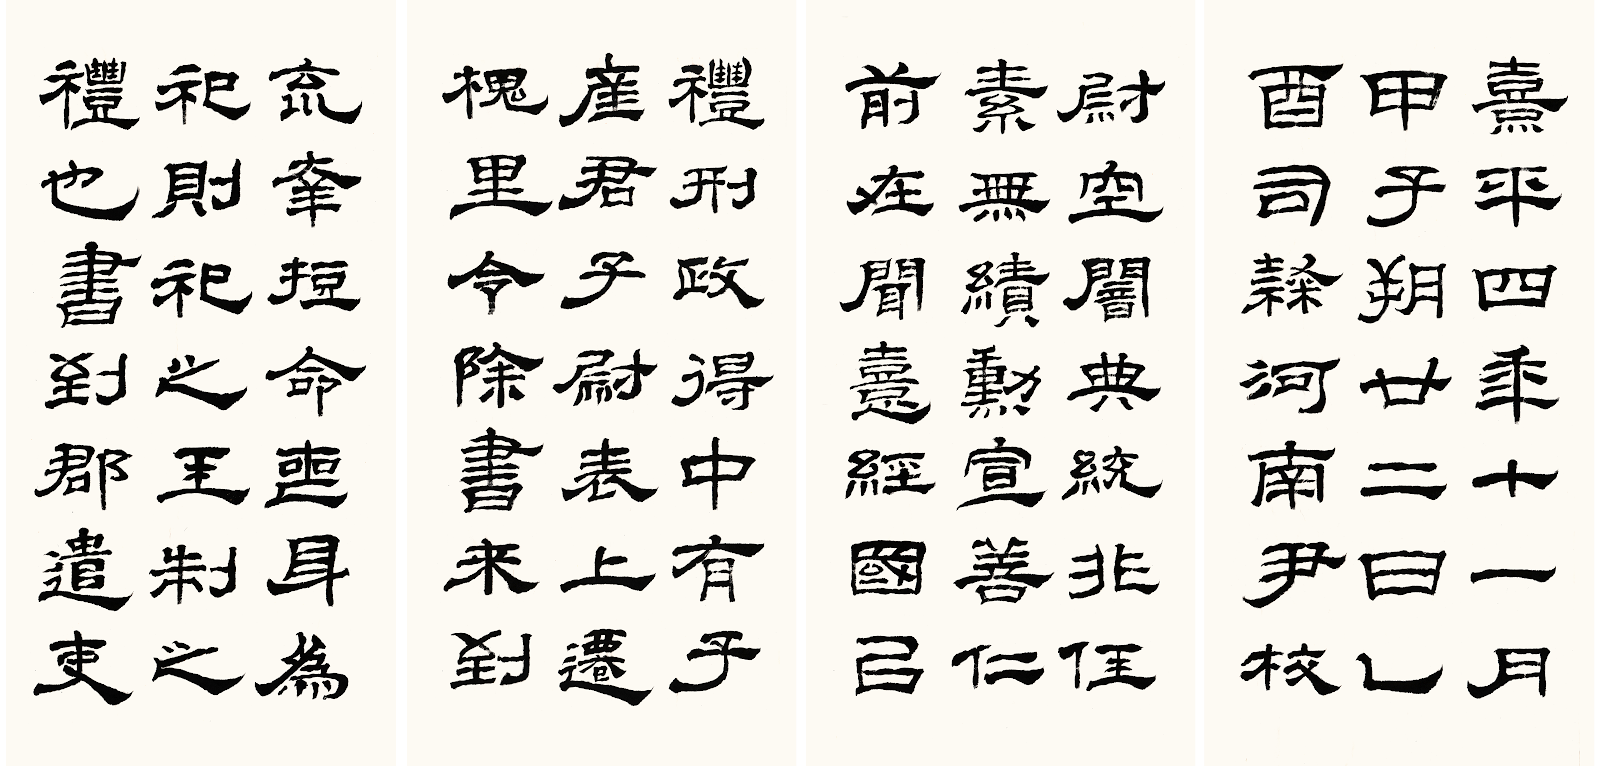 熹平四年十一月
甲子朔廿二日乙
酉司隸河南尹校
尉空闇典統非任
素無績勳宣善仁
前在聞憙經國以
禮刑政得中有子
產君子尉表上遷
槐里令除書来到
幸短命喪身為
祀則祀之王制之
禮也書到郡遣吏